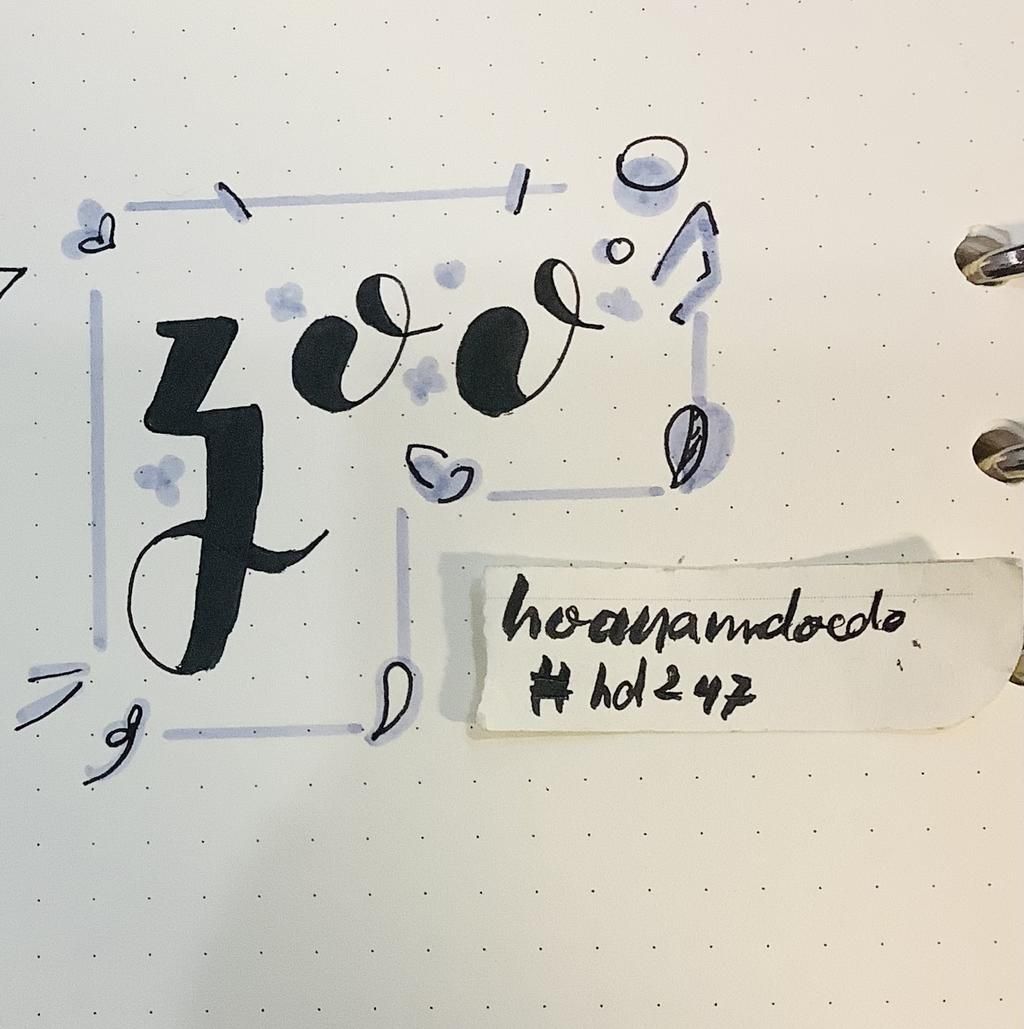 zoo
hoayamdoedo
#hd247